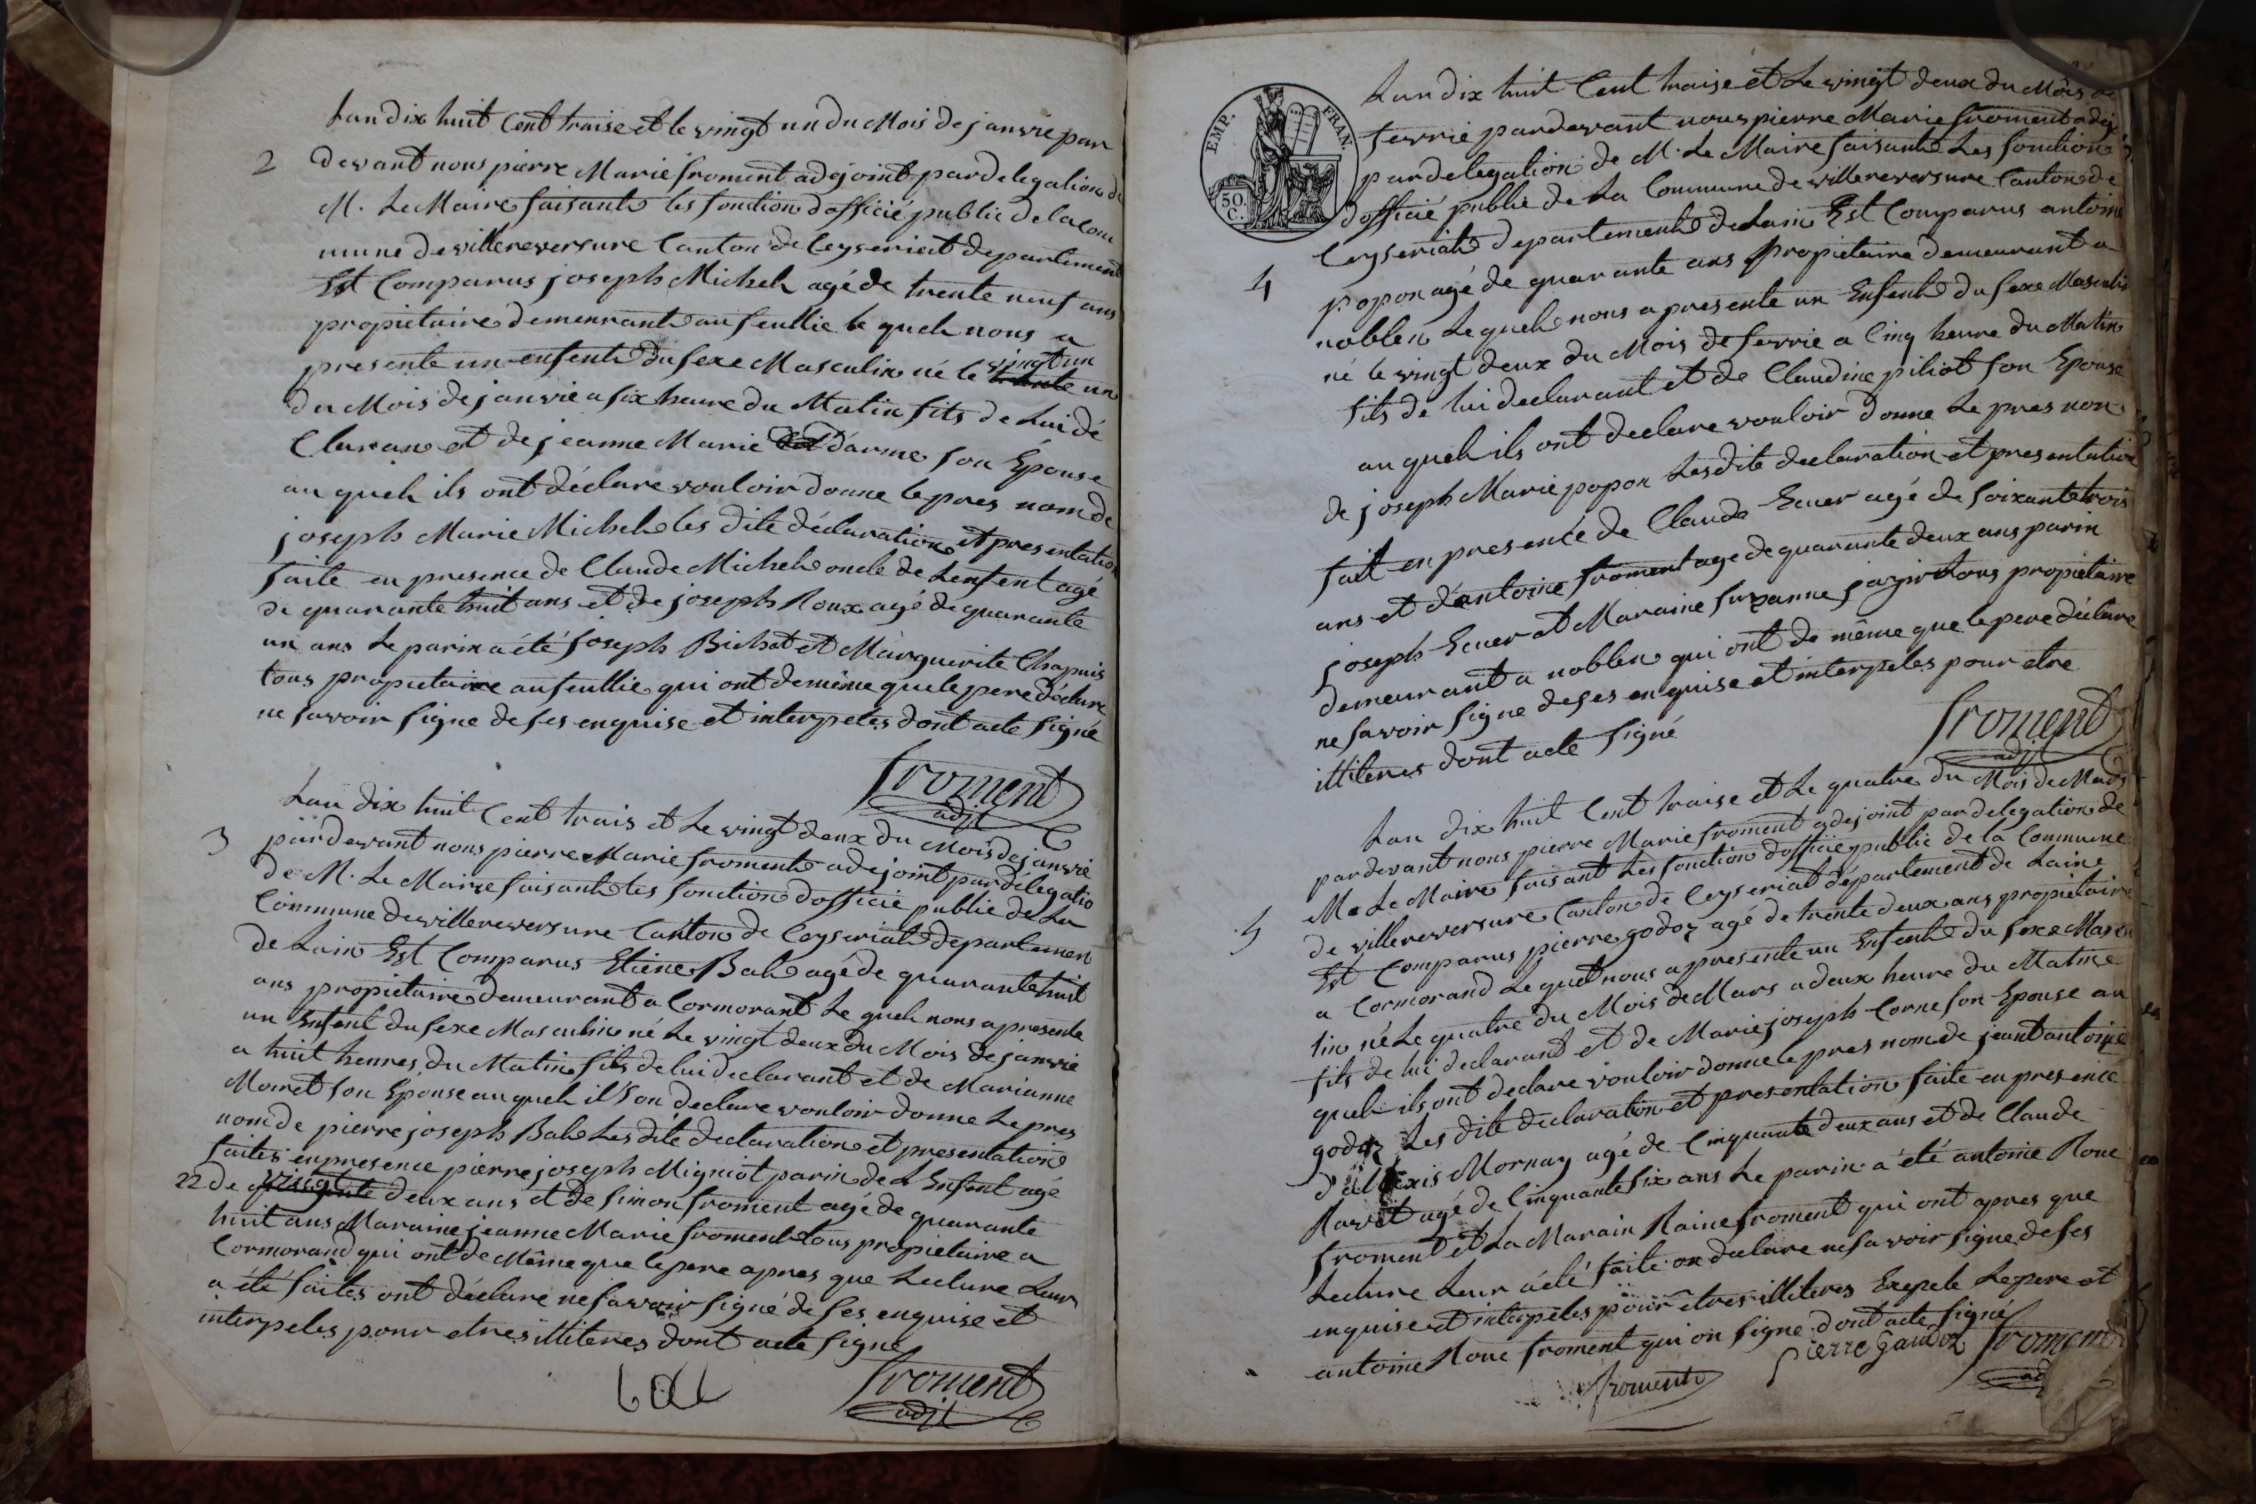 Lan dix huit Cent traise et le vingt un du Mois de janvie par
2 devant nous pierre Marie froment adejoint par delegation de
M. Le Maire faisant les fonction dofficié public de la Com
mune de villereversure Canton de Ceyseriat departement
Est Comparus joseph Michel agé de trente neuf ans
propietaire demeurant au feullie le quel nous a
presente un enfent du sexe Masculin né le vingt un un
du Mois de janvie a six heure du Matin fils de Lui dé
Claran et de jeanne Marie darme son Épouse
au quel ils ont déclare vouloir donne le pres nom de
joseph Marie Michel les dite déclaration et presentation
faite en presence de Claude Michel oncle de Lenfent agé
de quarante huit ans et de joseph Roux agé de quarante
un ans Le parin a été joseph Bichat et Marguerite Chapuis
tous propietaire au feullie qui ont de même que le pere déclare
ne savoir signe de ses enquise et interpeles dont acte signé
froment
adjt
Lan dix huit Cent trais et Le vingt deux du Mois de janvie
3 pardevant nous pierre Marie froment adejoint par délegatio
de M. Le Maire faisant les fonction dofficié public de La
Commune de villereversure Canton de Ceyseriat departemen
de Lain Est Comparus Etiene Bal agé de quarante huit
ans propietaire demeurant a Cormorant Le quel nous a presente
un Enfent du sexe Masculin né Le vingt deux du Mois de janvie
a huit heures du Matin fils de lui declarant et de Marianne
Moiret son Épouse au quel il son declare vouloir donne Le pres
nom de pierre joseph Bal Les dite declaration et presentation
faites en presence pierre joseph Migniot parin de L Enfent agé
22 de vingt deux ans et de simon froment agé de quarante
huit ans Maraine jeanne Marie froment tous propietaire a
Cormorand qui ont de Même que le pere apres que Lecture Leur
a été faites ont déclare ne savoir signé de ses enquise et
interpeles pour etres illiteres dont acte signe
bal
froment
adjt
EMP. FRAN.
50. C.
Lan dix huit Cent traise et Le vingt deux du Mois de
fevrie pardevant nous pierre Marie froment adej
par delegation de M. Le Maire faisant Les fonction
dofficié public de La Commune de villereversure Canton de
Ceyseriat departement de Lain Est Comparus antoine
4 popon agé de quarante ans propietaire demeurant a
noblen Le quel nous a presente un Enfent du sexe Masculin
né le vingt deux du Mois de fevrie a Cinq heure du Matin
fils de lui declarant et de Claudine piliot son Epouse
au quel ils ont declare vouloir donne Le pres non
de joseph Marie popon Les dite declaration et presentation
fait en presencé de Claude Ecuer agé de soixante trois
ans et dantoine froment age de quarante deux ans parin
joseph Ecuer et Maraine suzanne tous propietaire
demeurant a noblen qui ont de même que le pere déclare
ne savoir signe de ses enquise et interpeles pour etre
illiteres dont acte signé
froment
adjt
Lan dix huit Cent traise et Le quatre du Mois de Mars
pardevant nous pierre Marie froment adejoint par delegation de
M. Le Maire faisant Les fonction dofficié public de la Commune
5 de villereversure Canton de Ceyseriat département de Laine
Est Comparus pierre godoz agé de trente deux ans propietaire
a Cormorand Le quel nous a presente un Enfent du sexe Mascu
lin né Le quatre du Mois de Mars a deux heure du Matin
fils de lui declarant et de Marie joseph Corne son Epouse au
quel ils ont declare vouloir donne le pres nom de jeant antoine
godoz Les dite declaration et presentation faite en presence
dalexis Mornay agé de Cinquante deux ans et de Claude
Ravet agé de Cinquante six ans Le parin a été antoine Rone
froment et La Marain Raine froment qui ont apres que
Lecture Leur a été faite on declare ne savoir signe de ses
enquise et interpeles pour etres illiteres Exepele Le pere et
antoine Rone froment qui on signe dont acte signé
froment
pierre Gaudoz
froment
adj